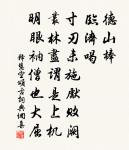 德山棒
臨濟喝
寸刃未施獻敗闕
叢林盡謂是上機
明眼衲僧也大屈
頌古詞典網集